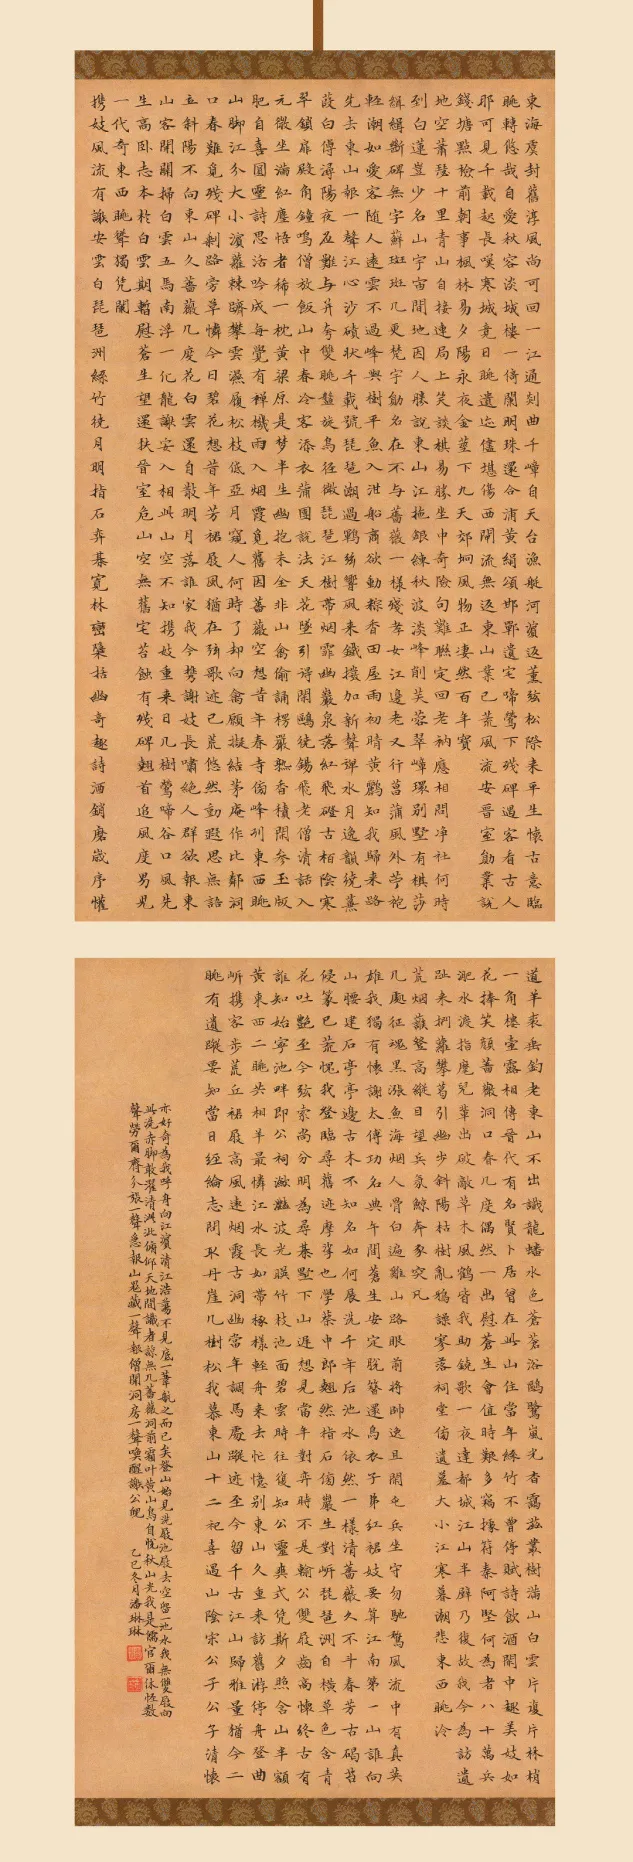 東海虞封舊淳風尚可回一江通剡曲千嶂自天台漁艇河濱返薰弦松際來平生懷古意臨
眺轉悠哉自愛秋容淡城樓一倚闌明珠還合浦黃絹頌邯鄲遺宅啼鶯下殘碑過客看古人
耶可見千載起長嘆寒城竟日眺遺迹儘堪傷西閘流無返東山業已荒風流安晉室勛業說
錢塘點檢前朝事楓林易夕陽永夜金莖下九天郊坰風物正淒然百年賓
地空蕭瑟十里青山自接連局上笑談棋易勝坐中奇險句難聯定回老衲應相問净社何時
到白蓮豈少名山宇宙間地因人勝說東山江拖銀練秋波淡峰削芙蓉翠嶂環別墅有棋莎
緝緝斷碑無字蘚斑斑几更梵宇勛名在不与薔薇一樣殘孝女江邊老又行菖蒲風外苧袍
輕潮如愛客随人遠雲不過峰與樹平魚入泔船商欲動粽香田屋雨初晴黃鸝知我歸来路
先去東山報一聲江心沙磧狀千載號琵琶潮過鹍弦響風来鐵撥加新聲彈水月逸韻繞蒹
葭白傅潯陽夜应難与并夸雙眺盤旋鳥徑微琵琶江樹帶烟霏幽巖泉落紅飛磴古栢陰寒
翠鎖扉殿角鐘鳴僧放飯山中春冷客添衣蒲團說法天花墜引得閑鷗繞錫飛老僧清話入
元微坐滿紅塵悟者稀一枕黃粱原是梦半生幽抱未全非山禽偷誦楞嚴熟香積閑参玉版
肥自喜圓靈詩思活吟成每覺有禪機雨入烟霞覓舊因薔薇空想昔年春寺倚峰列東西眺
山脚江分大小濱蘿棘躋攀雲濕履松枝低亞月窺人何時了却向禽願擬結茅庵作比鄰洞
口春難覓殘碑剩路旁草憐今日碧花想昔年芳裙屐風猶在弦歌迹已荒悠然動遐思無語
立斜陽不向東山久薔薇几度花白雲還自散明月落誰家我今携謝妓長嘯絕人群欲報東
山客開關掃白雲五馬南浮一化龍謝安入相此山空不知携妓重来日几樹鶯啼谷口風先
生高卧志本於白雲期暫慰蒼生望還扶晉室危山空無舊宅苔蝕有殘碑翹首追風度男兒
一代奇東西眺聳獨凭闌
携妓風流有謝安雲白琵琶洲綠竹繞月明指石弈棊寬林巒檃括幽奇趣詩酒銷磨歲序懽
道羊裘垂釣老東山不出識龍蟠水色蒼蒼浴鷗鷺嵐光杳靄茲叢樹滿山白雲片復片林梢
一角樓臺露相傳晉代有名賢卜居曾在此山住當年絲竹不曾停賦詩飲酒閑中趣美妓如
花捧笑顏薔薇洞口春几度偶然一出慰蒼生會值時艱多竊據符秦阿堅何為者八十萬兵
淝水渡指麾兒輩出破敵草木風鶴皆我助鐃歌一夜達都城江山半壁乃復故我今為訪遺
趾来捫蘿攀葛引幽步斜陽枯樹亂鴉譟寥落祠堂倚遺墓大小江寒暮潮悲東西眺冷
荒烟蘞登高縱目望兵氛鯨奔豕突凡
几處征魂黑漲魚海烟人骨白遍雞山路眼前將帥逸且閑屯兵坐守勿馳騖風流中有真英
雄我獨有懷謝太傅功名典午間蒼生安定脫簪還烏衣子弟紅裙妓要算江南第一山誰向
山腰建石亭亭邊古木不知名如何展洗千年后池水依然一樣清薔薇久不斗春芳古碣苔
侵篆已荒愧我登臨尋舊迹摩挲也學蔡中郎翹然指石倚巖生對峙琵琶洲自横草色含青
花吐艷至今弦索尚分明為尋棊墅下山遲想見當年對弈時不是輸公雙屐齒高懷終古有
誰知始寧池畔即公祠瀲灩波光躍竹枝池面碧雲時往復知公靈爽式凭斯夕照含山半額
黃東西二眺共相羊最憐江水長如帶稼樣輕舟来去忙憶別東山久重来訪舊游停舟登曲
岍携客步荒丘裙屐高風遠烟霞古洞幽當年調馬處蹤迹至今留千古江山歸雅量猶今二
眺有遺蹤要知當日經綸志問取丹崖几樹松我慕東山十二祀喜遇山陰宗公子公子清懷
亦好奇為我呼舟向江濱清江浩蕩不見底一葦航之而已矣登山始見洗屐池屐去空留一池水我無雙屐向
此浸赤脚敢濯清泚泚俯仰天地間識者諒無几薔薇洞前霜叶黃山鳥自脫秋山光我是儒官爾休怪数
聲勞爾齊分張一聲急報山鬼藏一聲報僧開洞房一聲喚醒謝公魄
乙巳冬月潘琳琳